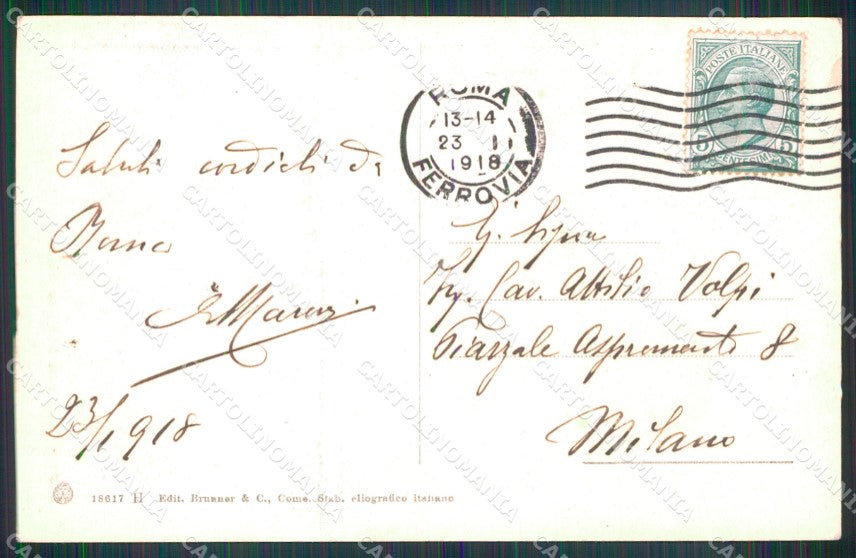 Saluti cordiali da
Roma
23/1 918
ROMA
13-14
23 I
1918
FERROVIA
POSTE ITALIANE
5 5
CENTESIMI
Cav. Attilio Volpi
Piazzale Aspromonte 8
Milano
18617 H Edit. Brunner & C., Como. Stab. eliografico italiano
CARTOLINOMANIA